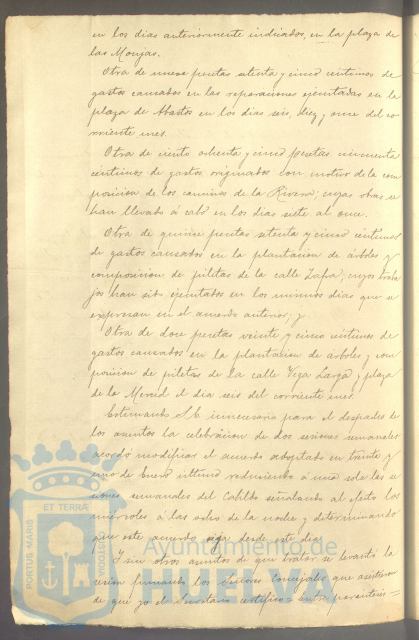 en los dias anteriormente indicados, en la plaza de
las Monjas.
Otra de nueve pesetas setenta y cinco centimos de
gastos causados en las reparaciones ejecutadas en la
plaza de Abastos en los dias seis, diez y once del co-
rriente mes.
Otra de ciento ochenta y cinco pesetas cincuenta
centimos de gastos originados con motivo de la com
posicion de los caminos de la Rivera; cuyas obras se
han llevado á cabo en los dias siete al once.
Otra de quince pesetas setenta y cinco centimos
de gastos causados en la plantacion de árboles y
composicion de piletas de la calle Zafra; cuyos traba
jos han sido ejecutados en los mismos dias que se
expresan en el acuerdo anterior; y
Otra de doce pesetas veinte y cinco centimos de
gastos causados en la plantacion de árboles y com
posicion de piletas de la calle Vega Larga y plaza
de la Merced el dia seis del corriente mes.
Estimando S.E. innecesario para el despacho de
los asuntos la celebracion de dos sesiones semanales
acordó modificar el acuerdo adoptado en treinta y
uno de Enero último reduciendo á una sola las se
siones semanales del Cabildo señalando al efecto los
miércoles á las ocho de la noche y determinando
que este acuerdo rija desde este dia.
Y sin otros asuntos de que tratar se levantó la
sesion firmando los Señores Concejales que asistieron
de que yo el Secretario certifico = Entre parentesis =
PORTUS MARIS
ET TERRÆ
CUSTODIA
Ayuntamiento de
HUELVA